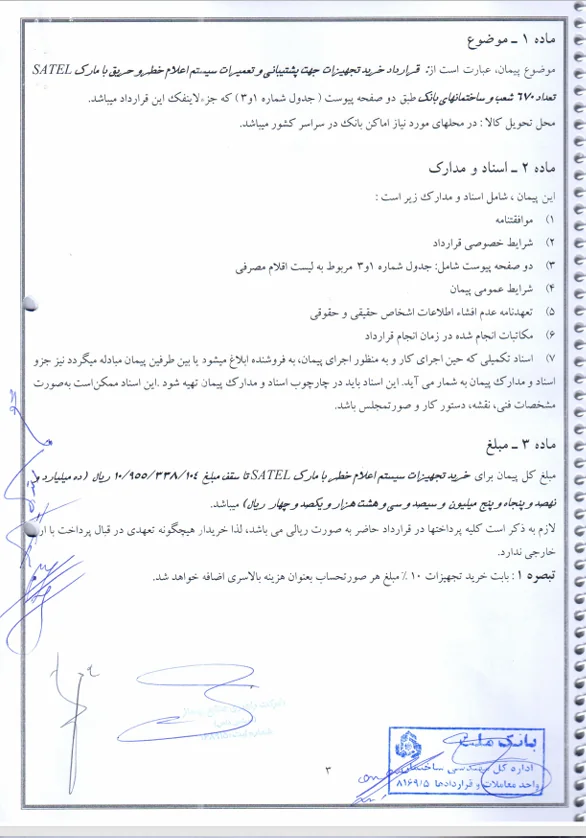 ماده ۱ ـ موضوع
موضوع پیمان، عبارت است از: قرارداد خرید تجهیزات جهت پشتیبانی و تعمیرات سیستم اعلام خطر و حریق با مارک SATEL
تعداد ۶۷۰ شعب و ساختمانهای بانک طبق دو صفحه پیوست ( جدول شماره ۱و۳ ) که جزء لاینفک این قرارداد میباشد.
محل تحویل کالا : در محلهای مورد نیاز اماکن بانک در سراسر کشور میباشد.
ماده ۲ ـ اسناد و مدارک
این پیمان ، شامل اسناد و مدارک زیر است :
۱) موافقتنامه
۲) شرایط خصوصی قرارداد
۳) دو صفحه پیوست شامل: جدول شماره ۱و۳ مربوط به لیست اقلام مصرفی
۴) شرایط عمومی پیمان
۵) تعهدنامه عدم افشاء اطلاعات اشخاص حقیقی و حقوقی
۶) مکاتبات انجام شده در زمان انجام قرارداد
۷) اسناد تکمیلی که حین اجرای کار و به منظور اجرای پیمان، به فروشنده ابلاغ میشود یا بین طرفین پیمان مبادله میگردد نیز جزو
اسناد و مدارک پیمان به شمار می آید. این اسناد باید در چارچوب اسناد و مدارک پیمان تهیه شود .این اسناد ممکن‌است به‌صورت
مشخصات فنی، نقشه، دستور کار و صورتمجلس باشد.
ماده ۳ ـ مبلغ
مبلغ کل پیمان برای خرید تجهیزات سیستم اعلام خطر با مارک SATEL تا سقف مبلغ ۱۰/۹۵۵/۳۳۸/۱۰۴ ریال (ده میلیارد و
نهصد و پنجاه و پنج میلیون و سیصد و سی و هشت هزار و یکصد و چهار ریال) میباشد.
لازم به ذکر است کلیه پرداختها در قرارداد حاضر به صورت ریالی می باشد، لذا خریدار هیچگونه تعهدی در قبال پرداخت با ارز
خارجی ندارد.
تبصره ۱ : بابت خرید تجهیزات ۱۰ ٪ مبلغ هر صورتحساب بعنوان هزینه بالاسری اضافه خواهد شد.
بانک ملت
اداره کل مهندسی ساختمان
واحد معاملات و قراردادها ۸۱۶۹/۵
۳